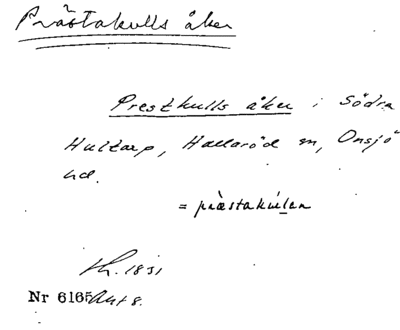 Prästakulls åker
Prestkulls åker i Södra
Hultarp, Hallaröd sn, Onsjö
hd.
= præstakúlen
Lh. 1831
Nr 6165 Akt 8.